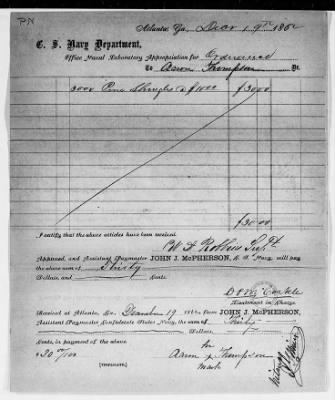 PN
Atlanta, Ga. Decr 19th 1862
C. S. Navy Department,
Office Naval Laboratory Appropriation for Ordnance
To Aaron Thompson Dr.
3000 Pine Shingles @ $10.00 $30 00
$30.00
I certify that the above articles have been received.
W. H. Robbins Supt.
Approved, and Assistant Paymaster JOHN J. McPHERSON, C. S. Navy, will pay
the above sum of Thirty
Dollars, and Cents.
Lieutenant in Charge
Received at Atlanta, Ga. December 19 1862 from JOHN J. McPHERSON,
Assistant Paymaster Confederate States Navy, the sum of Thirty
Dollars,
Cents, in payment of the above
$30 00/100
his
Aaron x Thompson
Mark
[TRIPLICATE]
Witness